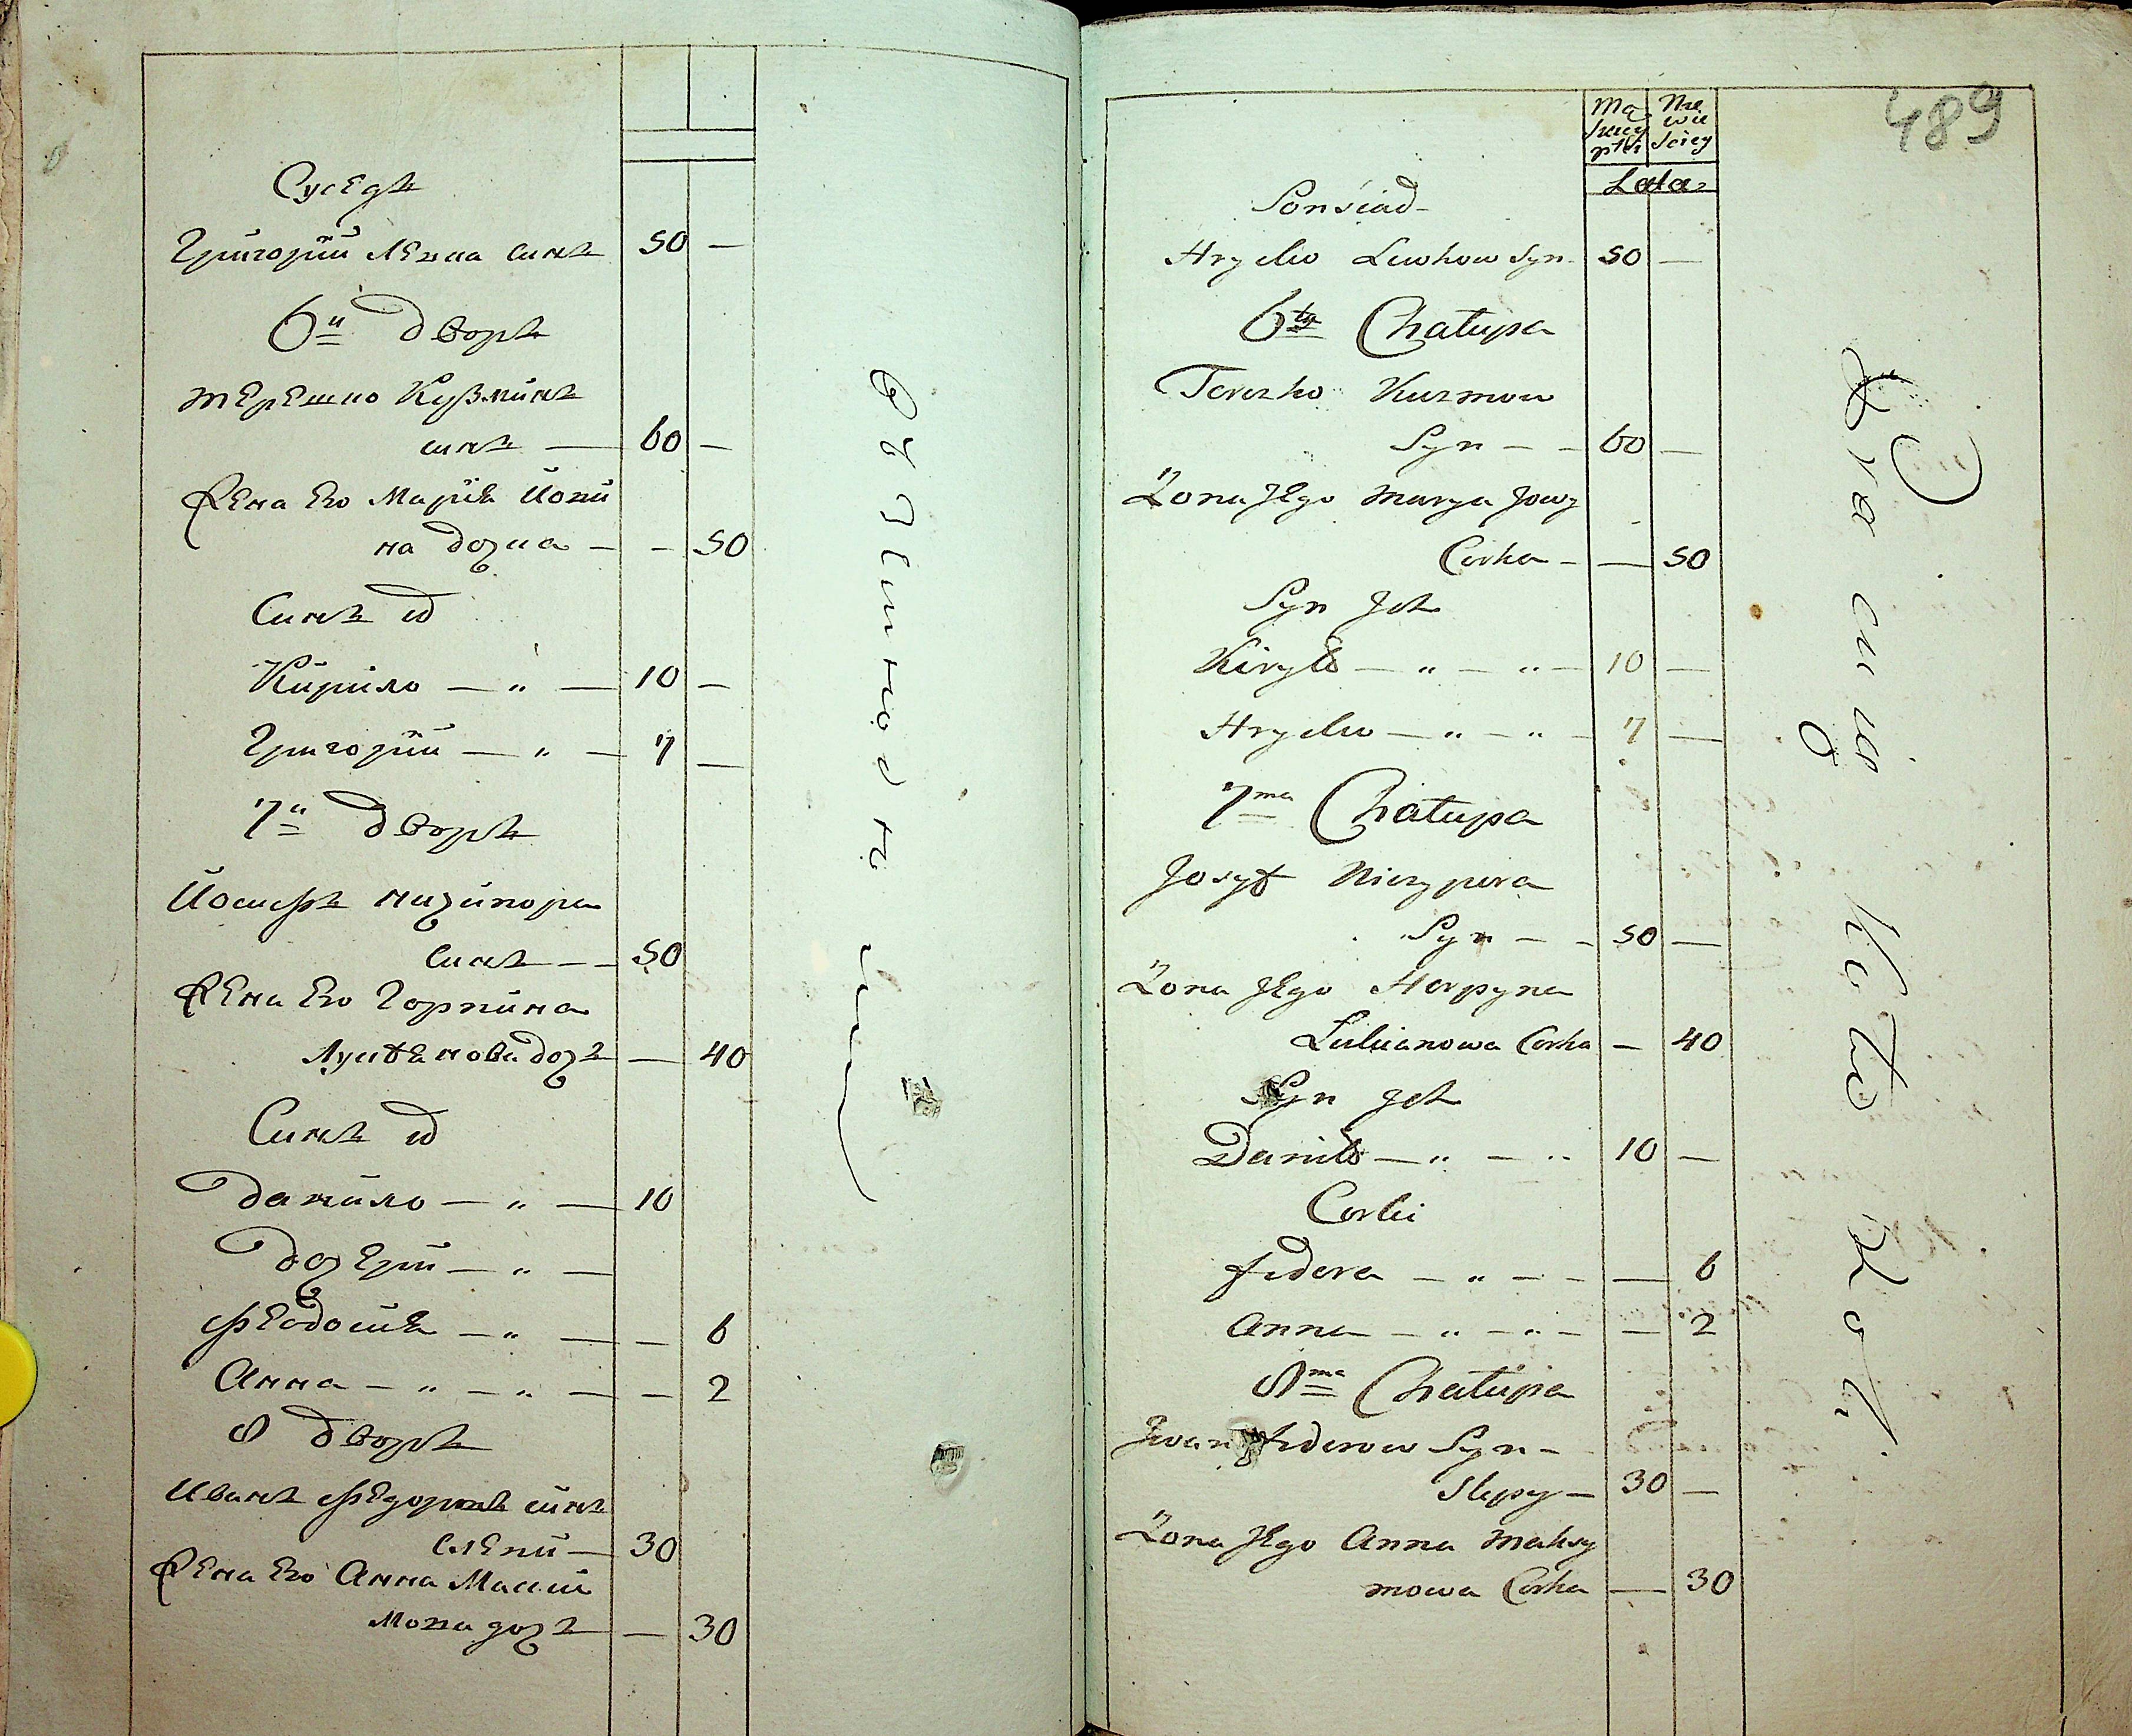 Сусѣдъ
Григорій Левка синъ 50 —
6й дворъ
Терешко Кузминъ
синъ — 60 —
Жена Его Марія Йови
на дочка — — 50
Синъ
Кирило — " — 10 —
Григорій — " — 7 —
7й дворъ
Йосифъ Ничипора
Синъ — — 50
Жена Его Горпина
дочъ — 40
Синъ
Данило — " — 10
дочери — " —
Феодосія — " — — 6
Анна — " — " — — 2
8 дворъ
Иванъ синъ
Слепий — 30
Жена Его Анна Макси
мова дочъ — 30
489
Mę
szczy
Nie
wie
ściey
Lata
Sonsiad
Hryćko Lewkow Syn 50 —
6ta Chałupa
Tereszko Kuzmow
Syn — — 60 —
Żona Jego Marya Jowy
Corka — — 50
Syn Ich
Kiryło — " — " — 10 —
Hryćko — " — " — 7 —
7ma Chałupa
Josyf Niczypora
Syn — — 50 —
Żona Jego Horpyna
Lukianowa Corka — 40
Syn Ich
Daniło — " — " 10 —
Corki
Fedora — " — — — 6
Anna — " — " — — 2
8ma Chałupa
Iwan Fedorow Syn —
Slepy — 30 —
Żona Jego Anna Maksy
mowa Corka — 30